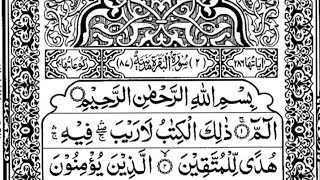 اٰیاتها ٢٨٦ (٢) سُوْرَةُ الْبَقَرَةِ مَدَنِيَّةٌ (٨٧) رکوعاتها
بِسْمِ اللهِ الرَّحْمٰنِ الرَّحِيْمِ
الٓمّٓ ۚ ذٰلِكَ الْكِتٰبُ لَا رَيْبَ فِيْهِ
هُدًى لِّلْمُتَّقِيْنَ الَّذِيْنَ يُؤْمِنُوْنَ